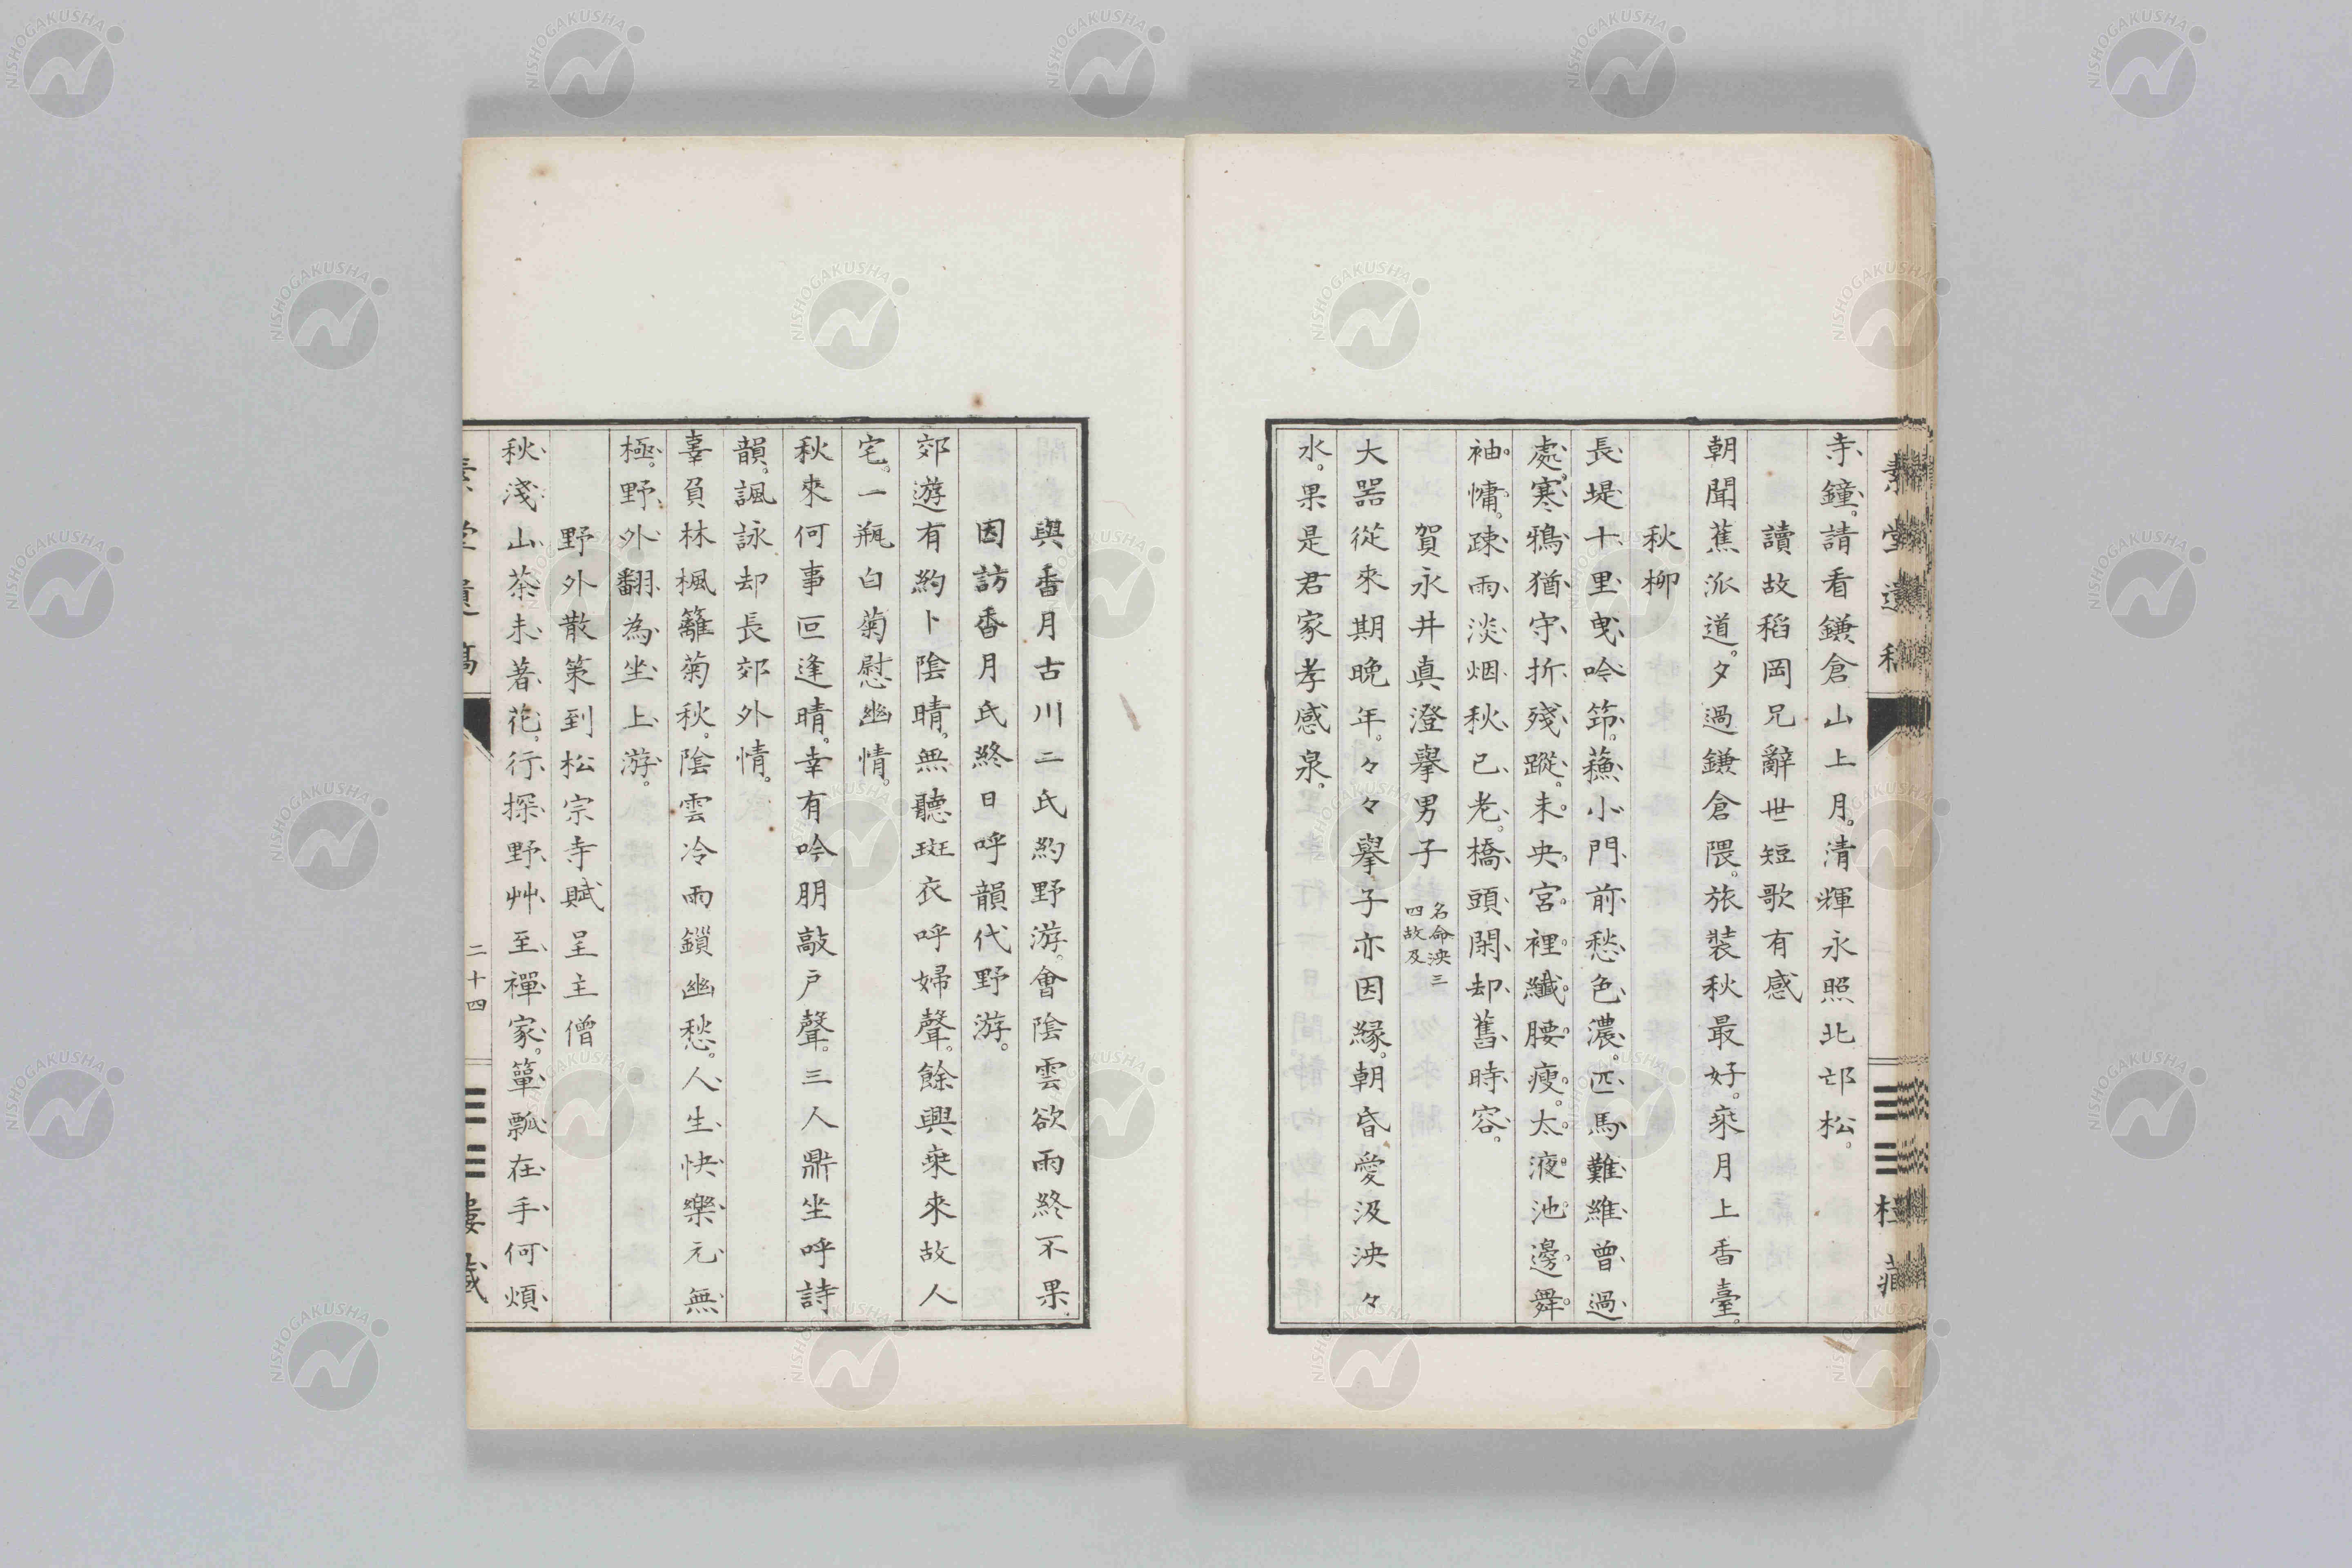 寺鐘。請看鎌倉山上月。清輝永照北邙松。
讀故稻岡兄辭世短歌有感
朝聞蕉派道。夕過鎌倉隈。旅裝秋最好。乘月上香臺。
秋柳
長堤十里曳吟筇。蘓小門前愁色濃。匹馬難維曾過
處。寒鴉猶守折殘蹤。未央宮裡纖腰瘦。太液池邊舞
袖慵。疎雨淡烟秋已老。橋頭閑却舊時容。
賀永井真澄擧男子 名命泱三四故及
大器從來期晩年。々々擧子亦因縁。朝昏愛汲泱々
水。果是君家孝感泉。
與香月古川二氏約野游。會陰雲欲雨終不果
因訪香月氏終日呼韻代野游。
郊遊有約卜陰晴。無聽斑衣呼婦聲。餘興乘來故人
宅。一瓶白菊慰幽情。
秋來何事叵逢晴。幸有吟朋敲戶聲。三人鼎坐呼詩
韻。諷詠却長郊外情。
辜負林楓籬菊秋。陰雲冷雨鎖幽愁。人生快樂元無
極。野外翻為坐上游。
野外散策到松宗寺賦呈主僧
秋淺山茶未著花。行探野艸至禪家。簞瓢在手何煩
二十四